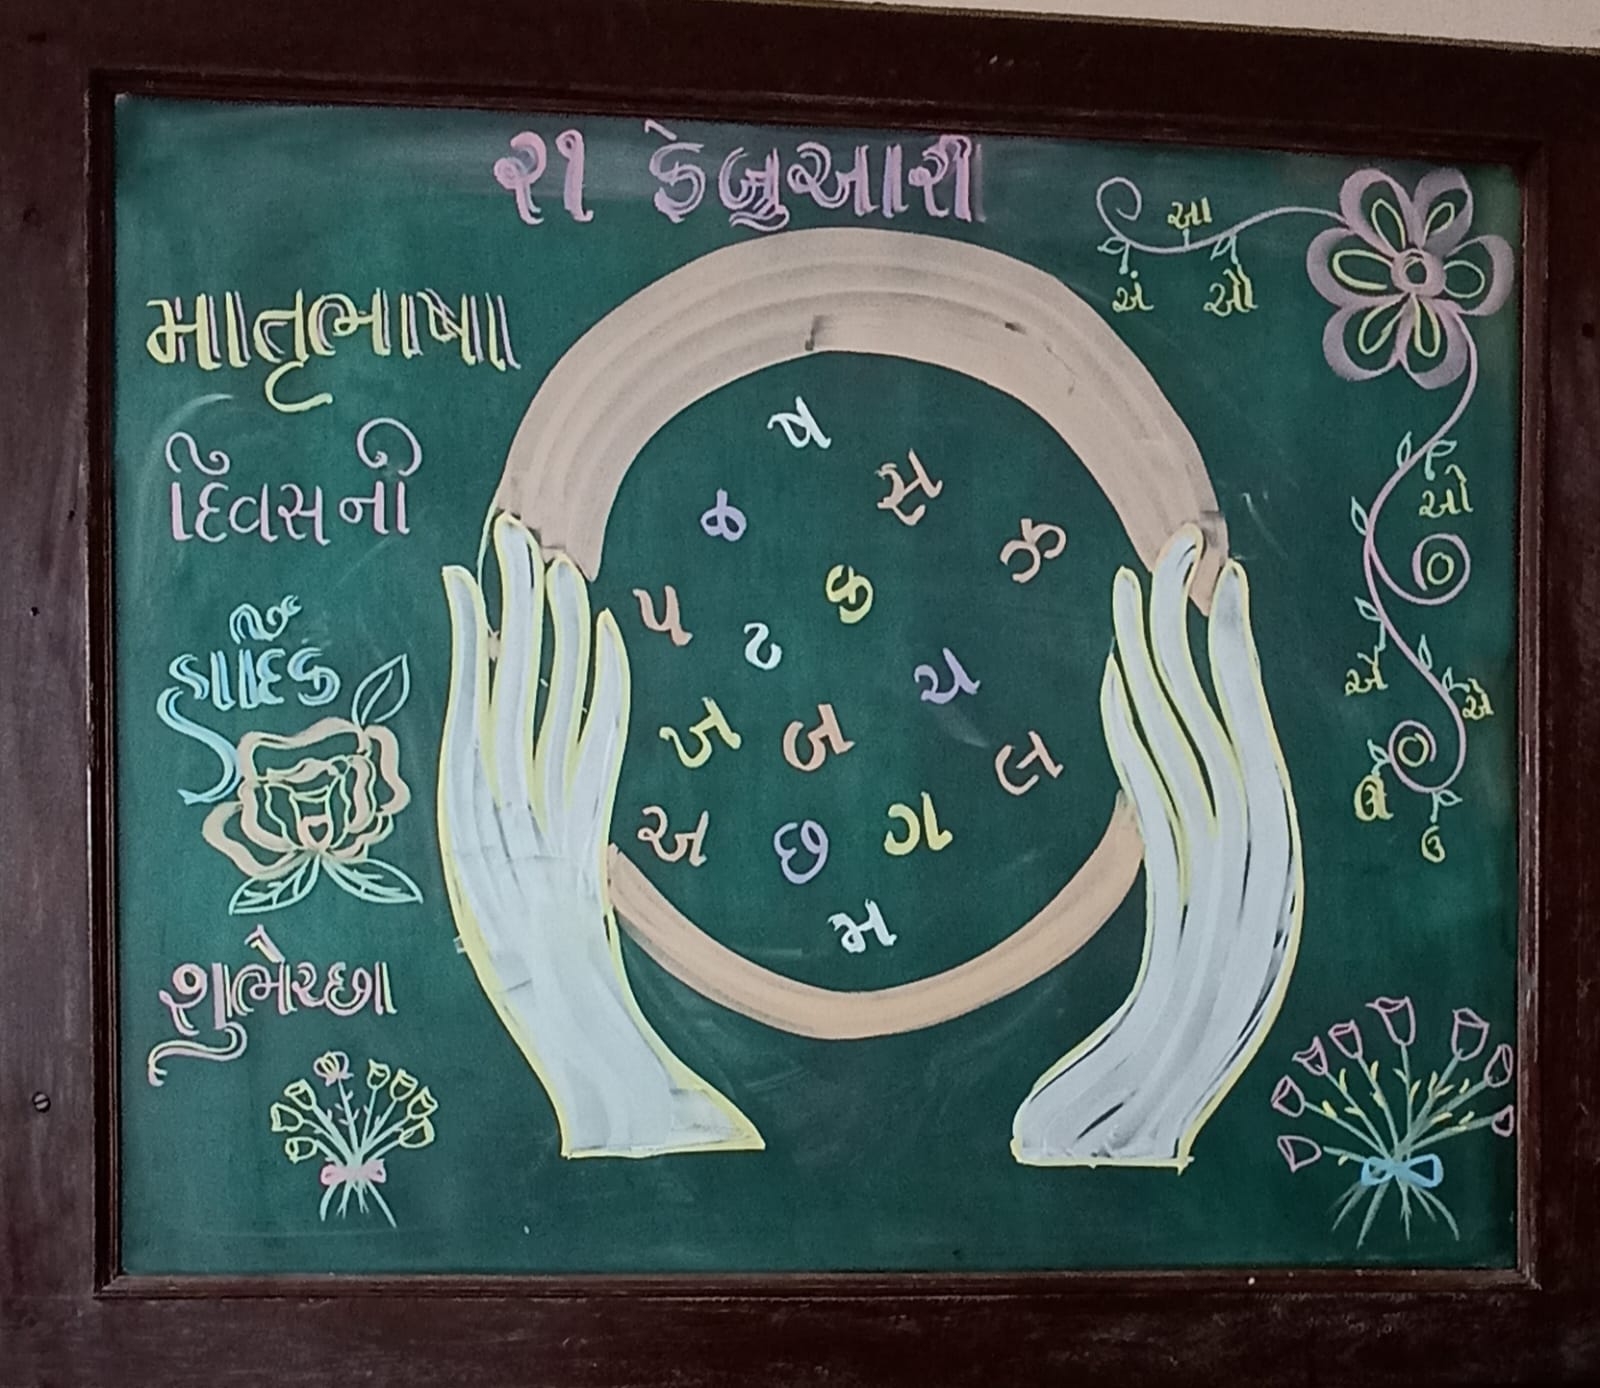 ૨૧ ફેબ્રુઆરી
માતૃભાષા
દિવસની
હાર્દિક
શુભેચ્છા
ષ
સ
ઝ
પ
ટ
ચ
ખ
બ
લ
અ
છ
ગ
મ
આ
અં
ઓ
ઊ
ઉ